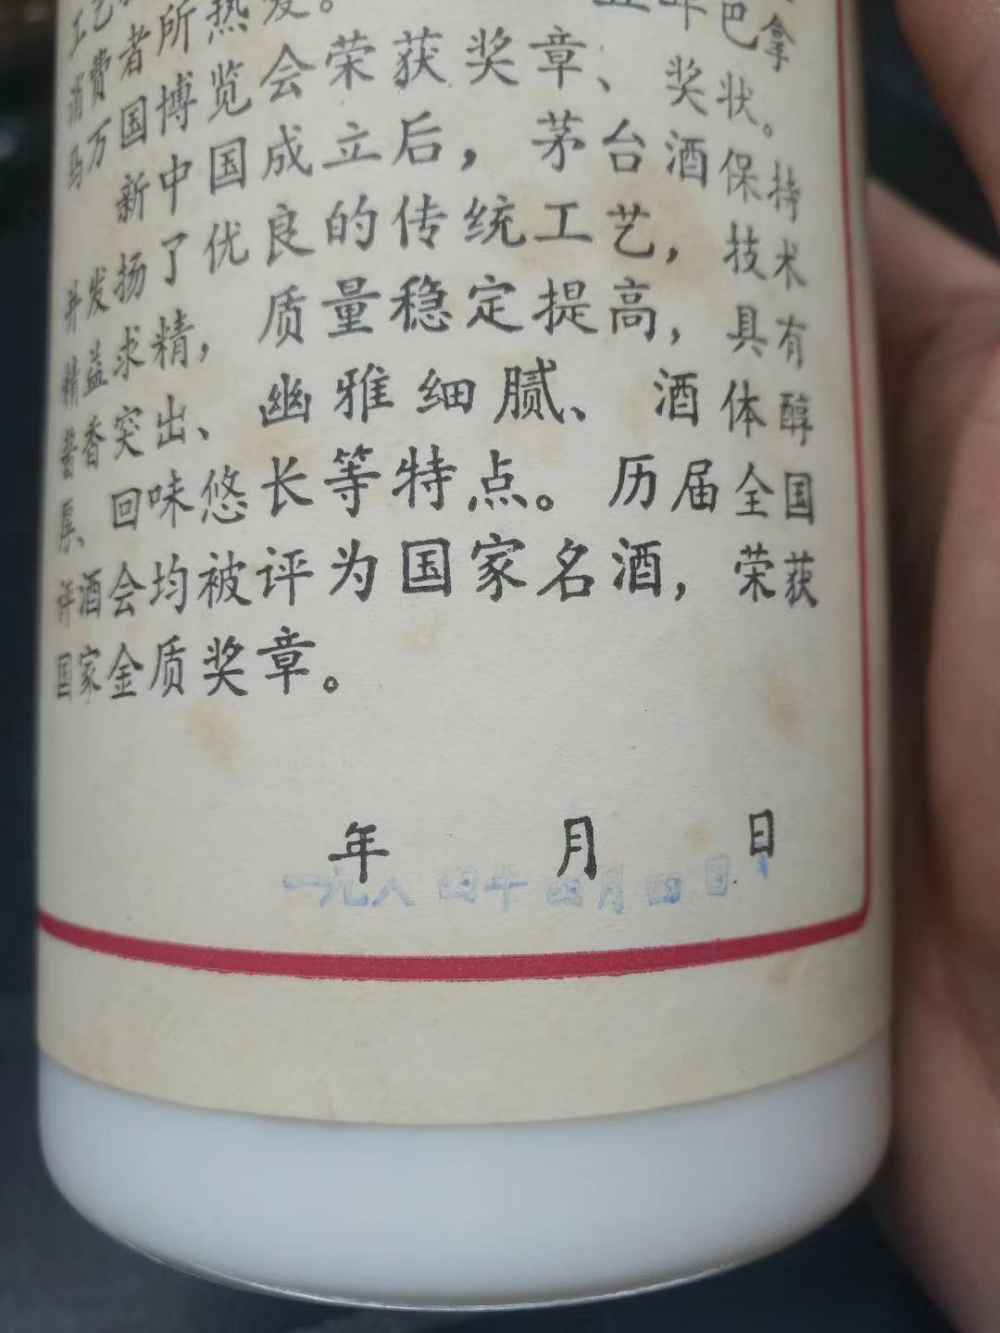 消费者所热爱。
巴拿
马万国博览会荣获奖章、奖状。
新中国成立后，茅台酒保持
并发扬了优良的传统工艺，技术
精益求精，质量稳定提高，具有
酱香突出、幽雅细腻、酒体醇
厚、回味悠长等特点。历届全国
评酒会均被评为国家名酒，荣获
国家金质奖章。
年 月 日
一九八四年四月四日